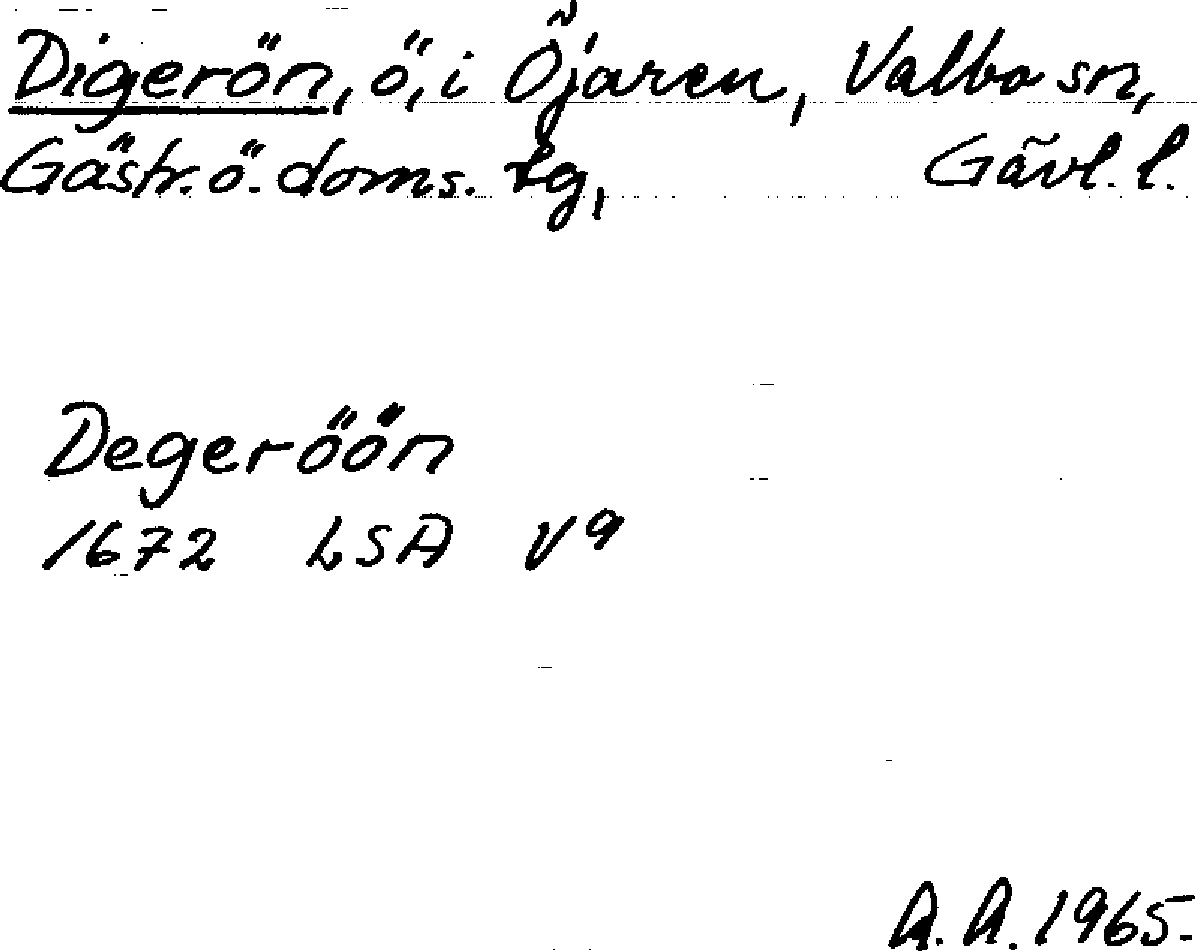 Digerön, ö, i Öjaren, Valbo sn,
Gästr. ö. doms. tg, Gävl. l.
Degeröön
1672 LSA V9
A. A. 1965.